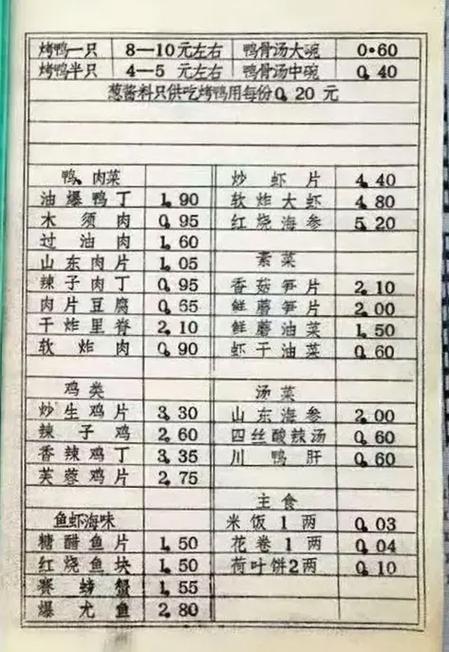 烤鸭一只 8—10元左右 鸭骨汤大碗 0.60
烤鸭半只 4—5 元左右 鸭骨汤中碗 0.40
葱酱料只供吃烤鸭用每份0.20 元
鸭、肉菜
油爆鸭丁 1.90
木须肉 0.95
过油肉 1.60
山东肉片 1.05
辣子肉丁 0.95
肉片豆腐 0.65
干炸里脊 2.10
软炸肉 0.90
鸡类
炒生鸡片 3.30
辣子鸡 2.60
香辣鸡丁 3.35
芙蓉鸡片 2.75
鱼虾海味
糖醋鱼片 1.50
红烧鱼块 1.50
赛螃蟹 1.55
爆尤鱼 2.80
炒虾片 4.40
软炸大虾 4.80
红烧海参 5.20
素菜
香菇笋片 2.10
鲜蘑笋片 2.00
鲜蘑油菜 1.50
虾干油菜 0.60
汤菜
山东海参 2.00
四丝酸辣汤 0.60
川鸭肝 0.60
主食
米饭1两 0.03
花卷1两 0.04
荷叶饼2两 0.10